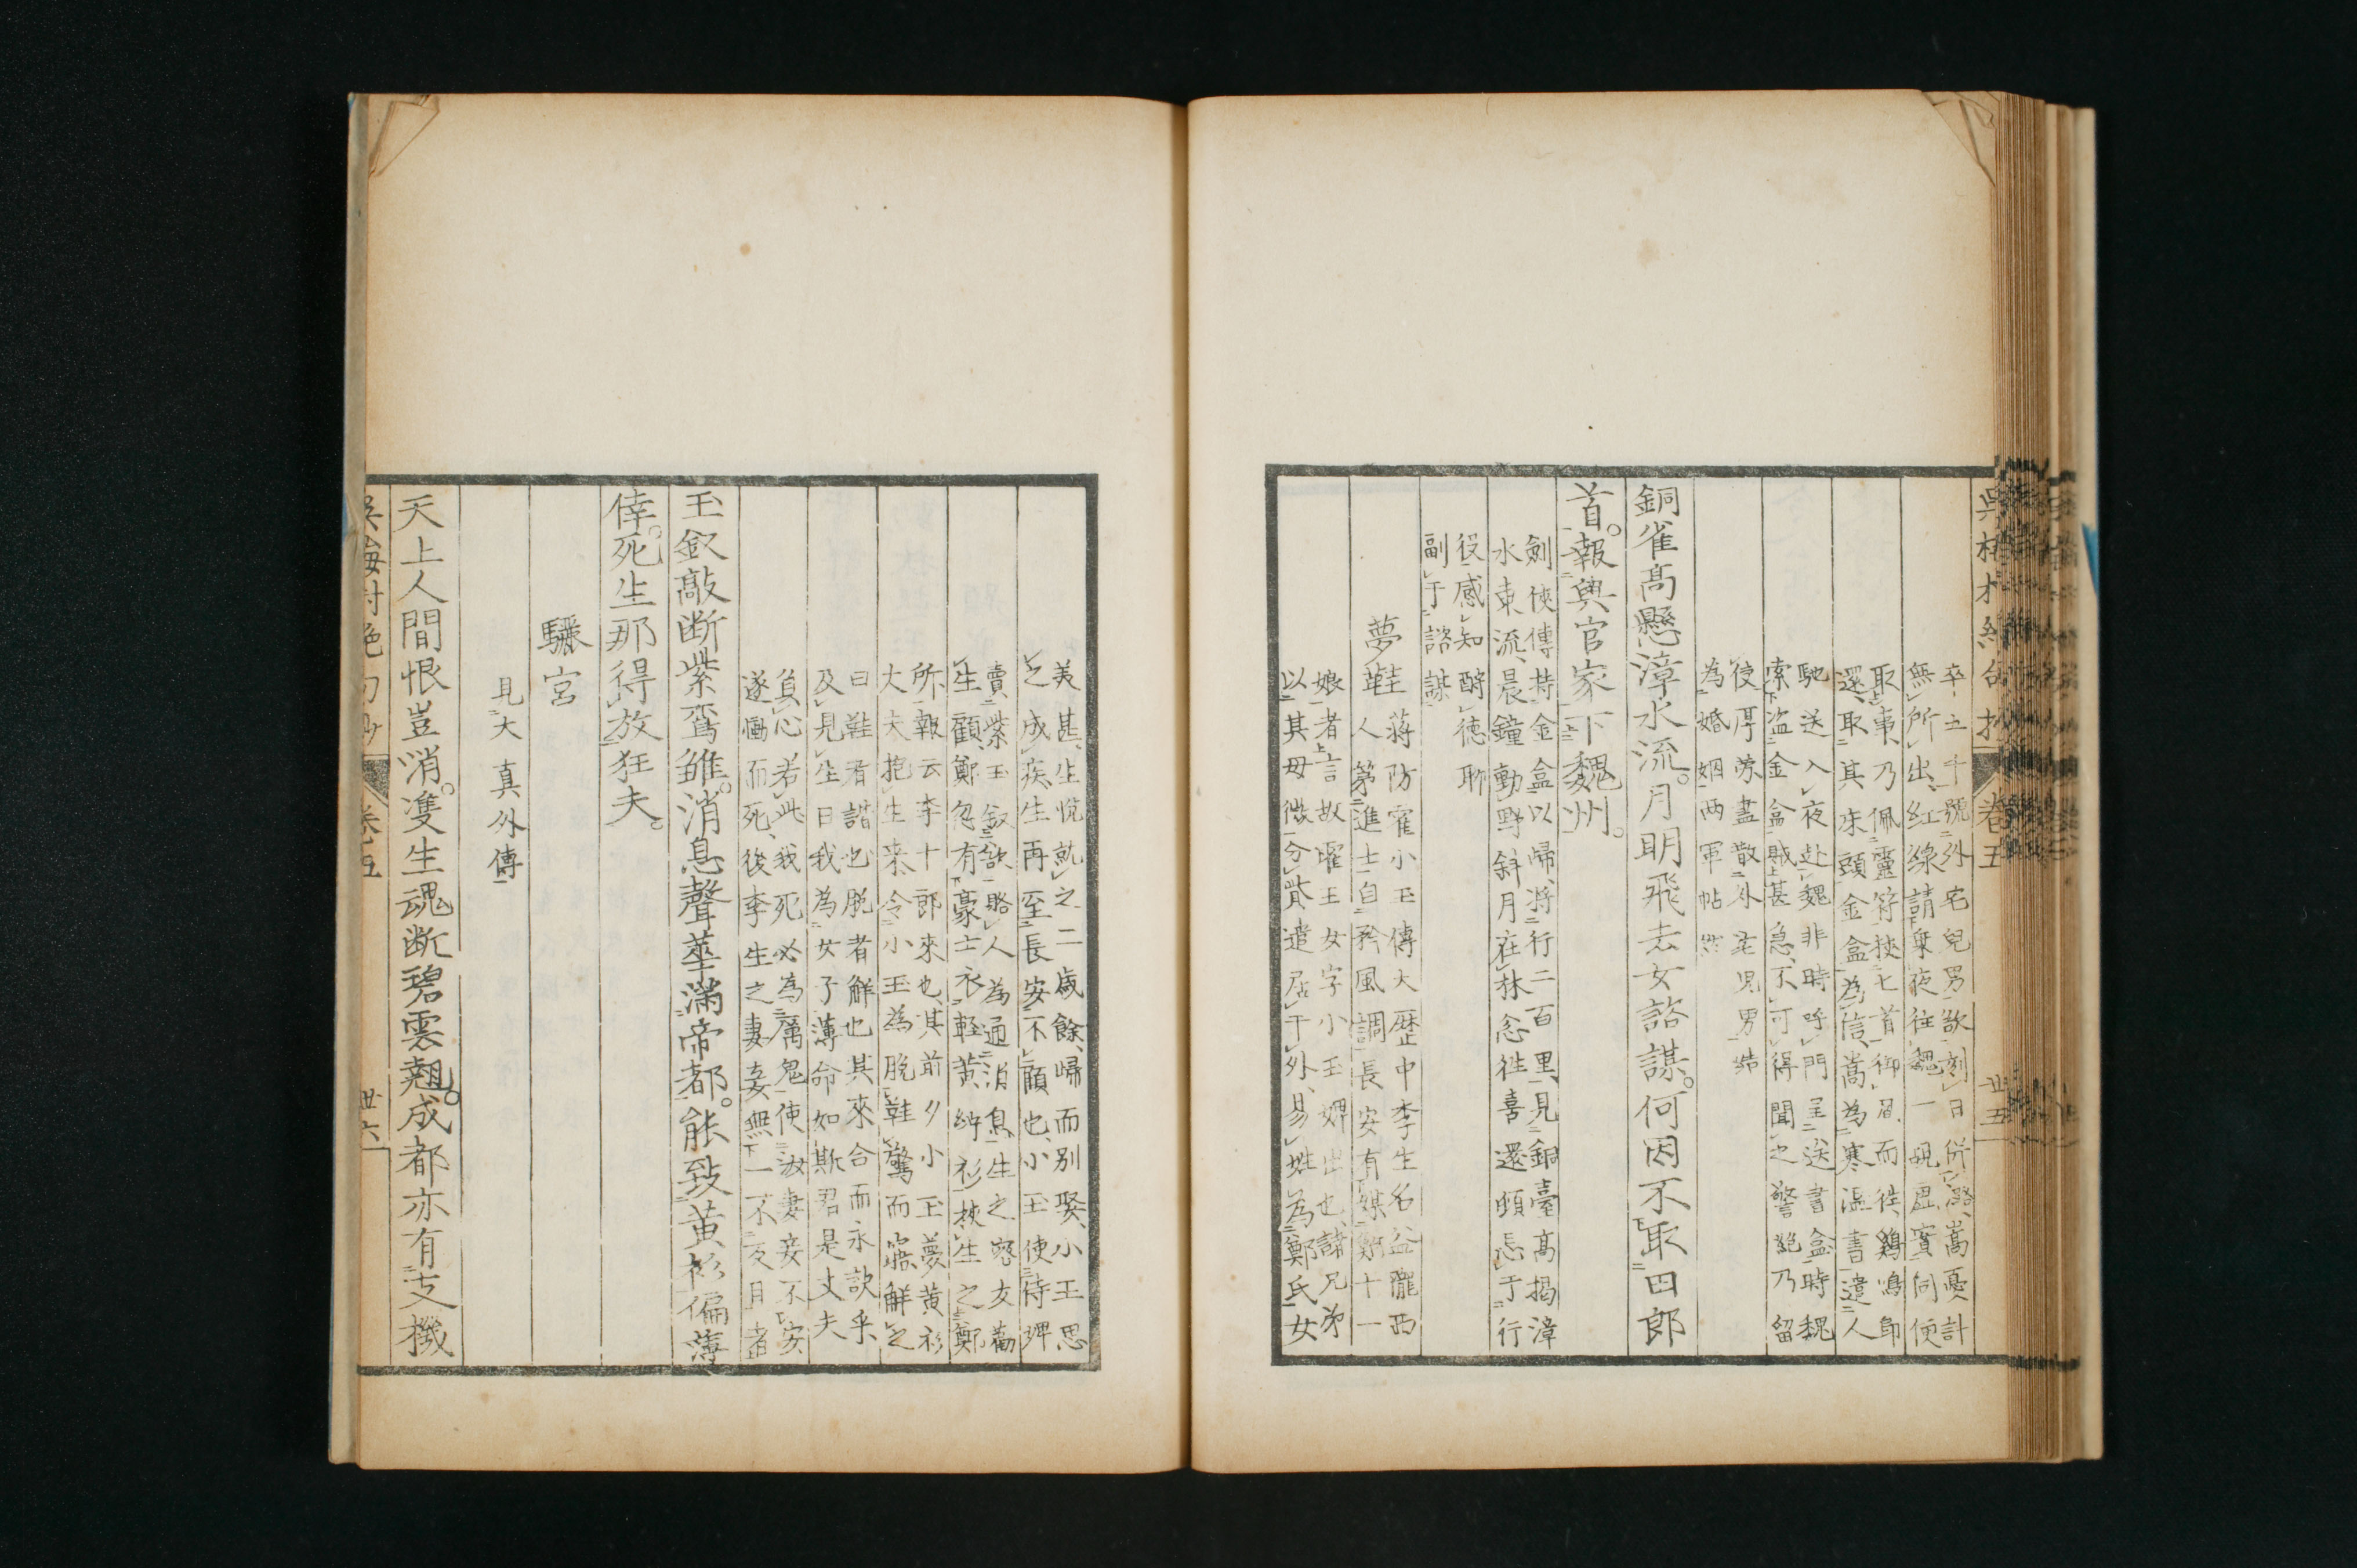 卷五
卅五
卒五千號外宅兒男欲刻日併潞嵩憂計
無所出紅線請乗夜往魏一覘虛實同便
取事乃佩靈符挾七首御眉而徃鷄鳴即
還取其床頭金盒為信嵩為寒温書遣人
馳送入夜赴魏非時呼門呈送書盒時魏
索盗金盒賊甚急不可得聞之驚絶乃留
使厚勞盡散外宅児男結
為婚姻两軍帖然
銅雀髙懸漳水流。月明飛去女諮謀。何因不取四郎
首。報與官家下魏州。
劍俠傳持金盒以歸将行二百里見銅臺髙揭漳
水東流晨鐘動野斜月在林忿徃喜還頓忘于行
役感知酧徳聊
副于諮謀
夢鞋
蒋防霍小玉傳大歴中李生名益隴西
人第進士自矜風調長安有媒鮑十一
娘者言故霍王女字小玉婢出也諸兄弟
以其母微分貲遣居于外易姓為鄭氏女
美甚生悅就之二歲餘歸而别娶小玉思
之成疾生再至長安不顧也小玉使侍婢
賣紫玉釵欲賂人為通消息生之密友勸
生顧鄭忽有豪士衣輕黄紵衫挾生之鄭
所報云李十郎來也其前夕小玉夢黄衫
大夫抱生来令小玉為脫鞋驚而寤解之
曰鞋者諧也脫者觧也其來合而永訣乎
及見生曰我為女子薄命如斯君是丈夫
負心若此我死必為厲鬼使汝妻妾不安
遂慟而死後李生之妻妾無一不反目者
玉釵敲断紫鸞雏。消息聲華滿帝都。能致黄衫偏薄
倖。死生那得放狂夫。
驪宮
見大真外傳
天上人間恨豈消。隻生魂断碧雲翹。成都亦有支機
卷五
卅六